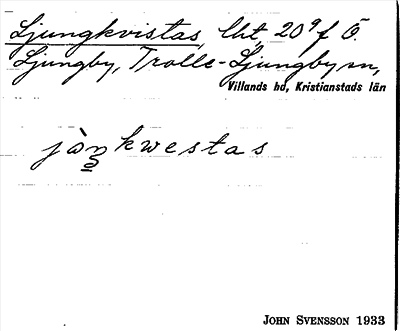 Ljungkvistas, lht, 20⁹f Ö.
Ljungby, Trolle-Ljungby sn,
Villands hd, Kristianstads län
jàn̥kwestas
JOHN SVENSSON 1933